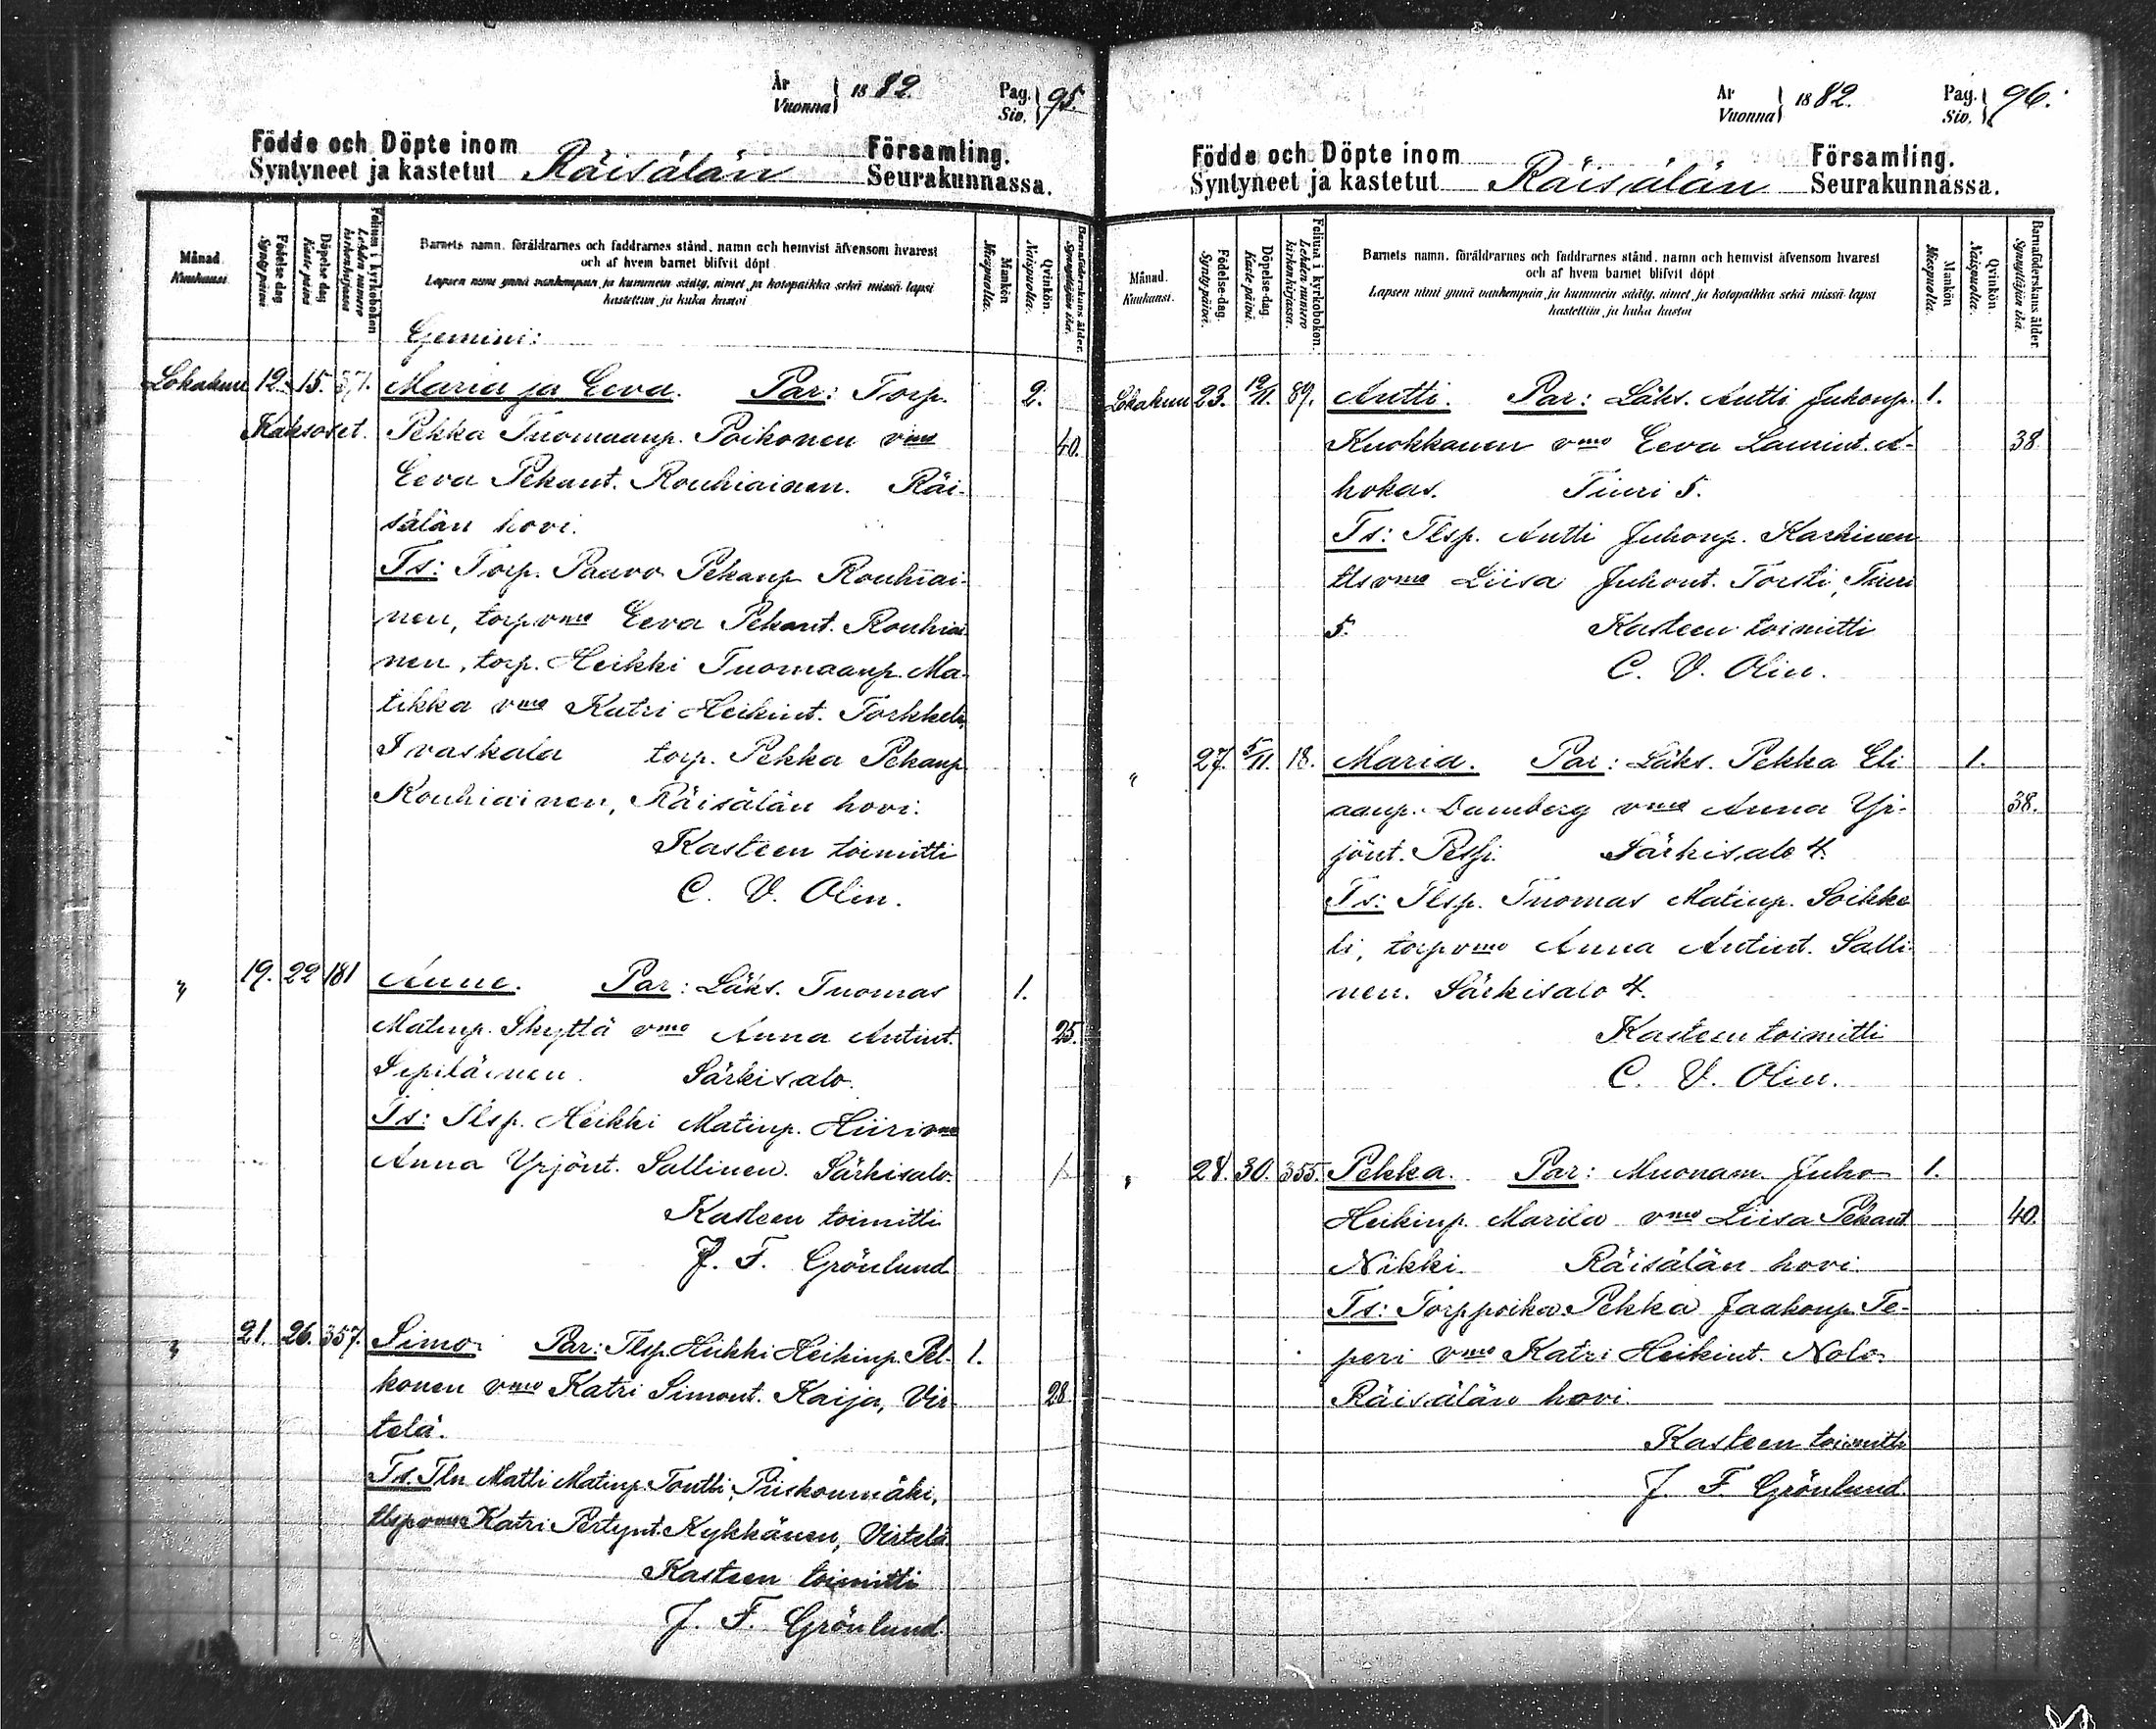 År
Vuonna } 1882.
Pag.
Siv. } 95.
Födde och Döpte inom Församling.
Syntyneet ja kastetut Räisälän Seurakunnassa.
Månad. Kuukausi.
Födelse-dag. Synty-päivä.
Döpelse-dag. Kaste-päivä.
Folium i kyrkoboken. Lehden numero kirkonkirjassa.
Barnets namn, föräldrarnes och faddrarnes stånd, namn och hemvist äfvensom hvarest
och af hvem barnet blifvit döpt
Lapsen nimi ynnä vanhempain ja kummein sääty, nimet ja kotopaikka sekä missä lapsi
kastettiin ja kuka kastoi
Mankön. Miespuolta.
Qvinkön. Naispuolta.
Barnaföderskans ålder. Synnyttäjän ikä.
Gemini:
Lokakuu 12. 15. 371. Maria ja Eeva. Par: Torp. 2.
Kaksoset. Pekka Tuomaanp. Poikonen vmo 40.
Eeva Pekant. Rouhiainen. Räi-
sälän hovi.
Ts: Torp. Paavo Pekanp Rouhiai-
nen, torp vmo Eeva Pekant. Rouhiai
nen, torp. Heikki Tuomaanp. Ma-
tikka vmo Katri Heikint. Torkkeli,
Ivaskala torp. Pekka Pekanp
Rouhiainen, Räisälän hovi.
Kasteen toimitti
C. V. Olin.
" 19. 22 181 Anna. Par: Läks. Tuomas 1.
Matinp. Skyttä vmo Anna Antint. 25.
Särkisalo.
Ts: Tlsp. Heikki Matinp. Hiiri vmo
Anna Yrjönt. Sallinen. Särkisalo.
Kasteen toimitti
J. F. Grönlund
" 21. 26. 357. Simo. Par: Tlsp. Heikki Heikinp. Pel- 1.
konen vmo Katri Simont. Kaija, Vir 28.
telä.
Ts. Tln Matti Matinp. Tontti, Priskonmäki,
tlsp vmo Katri Pertynt. Kykkänen, Virtelä.
Kasteen toimitti
J. F. Grönlund.
År
Vuonna } 1882.
Pag.
Siv. } 96.
Födde och Döpte inom Församling.
Syntyneet ja kastetut Räisälän Seurakunnassa.
Månad. Kuukausi.
Födelse-dag. Synty-päivä.
Döpelse-dag. Kaste-päivä.
Folium i kyrkoboken. Lehden numero kirkonkirjassa.
Barnets namn, föräldrarnes och faddrarnes stånd, namn och hemvist äfvensom hvarest
och af hvem barnet blifvit döpt
Lapsen nimi ynnä vanhempain ja kummein sääty, nimet ja kotopaikka sekä missä lapsi
kastettiin ja kuka kastoi
Mankön. Miespuolta.
Qvinkön. Naispuolta.
Barnaföderskans ålder. Synnyttäjän ikä.
Lokakuu 23. 12/11. 89. Antti. Par: Läks. Antti Juhonp. 1.
Kuokkanen vmo Eeva Laurint. A- 38
hokas. Tiuri 5.
Ts: Tlsp. Antti Juhonp. Karhinen
tls vmo Liisa Juhont. Torsti, Tiuri
5. Kasteen toimitti
C. V. Olin.
" 27. 5/11. 18. Maria. Par: Läks. Pekka Eli 1.
aanp. Damberg vmo Anna Yr- 38.
jönt. Pessi. Särkisalo 4.
Ts: Tlsp. Tuomas Matinp. Soikke
li, torp vmo Anna Antint. Salli-
nen. Särkisalo 4.
Kasteen toimitti
C. V. Olin.
" 28. 30. 355. Pekka. Par: Muonam. Juho 1.
Heikinp. Marila vmo Liisa Pekant 40.
Nikki. Räisälän hovi.
Ts: Torppoika Pekka Jaakonp Te-
peri vmo Katri Heikint. Nolo.
Räisälän hovi.
Kasteen toimitti
J. F. Grönlund.